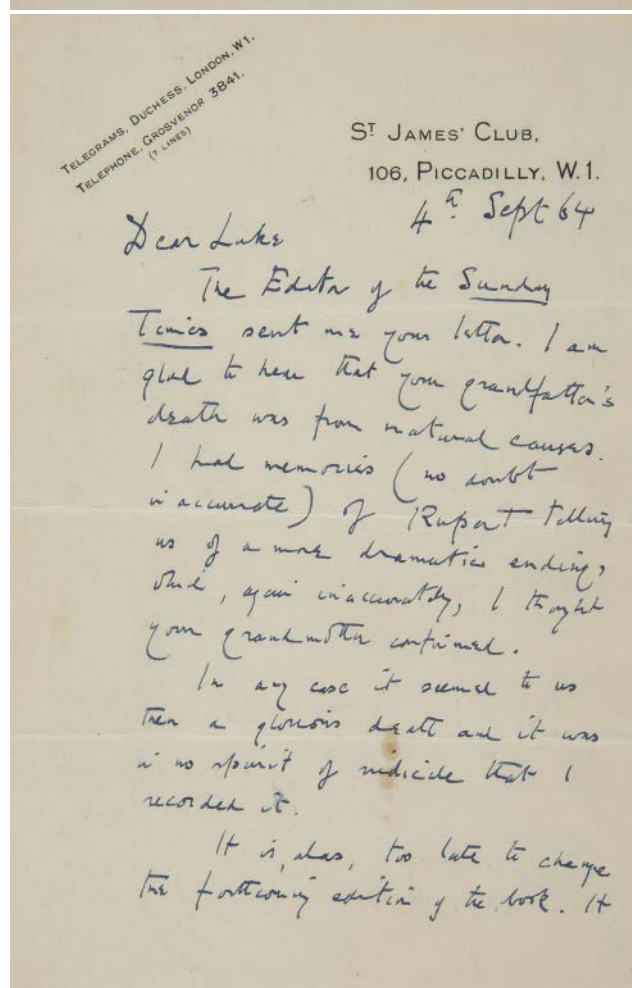 TELEGRAMS, DUCHESS, LONDON, W1.
TELEPHONE, GROSVENOR 3841.
(7 LINES)
ST JAMES' CLUB,
106, PICCADILLY, W.1.
4th Sept 64
Dear Luke
The Editor of the Sunday
Times sent me your letter. I am
glad to hear that your grandfather's
death was from natural causes.
I had memories (no doubt
inaccurate) of Rupert telling
us of a more dramatic ending,
which, again inaccurately, I thought
your grandmother confirmed.
In any case it seemed to us
then a glorious death and it was
in no spirit of ridicule that I
recorded it.
It is, alas, too late to change
the forthcoming edition of the book. It